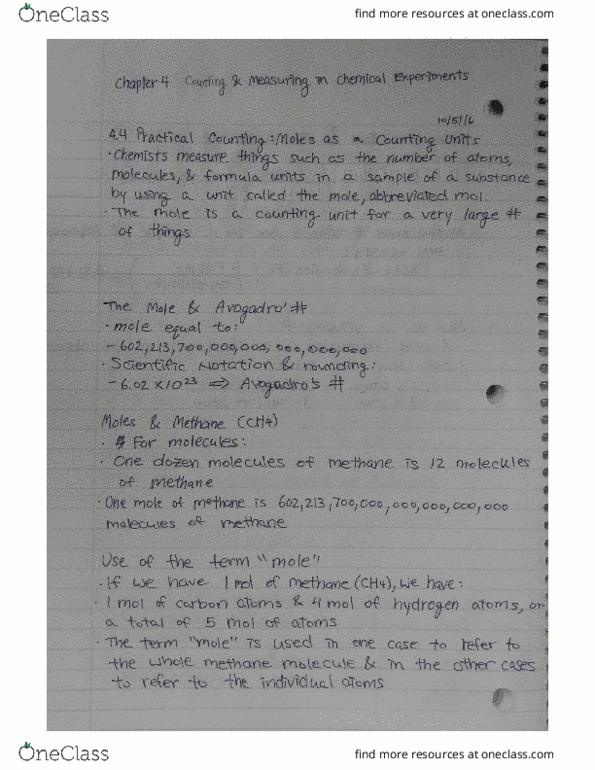 OneClass
find more resources at oneclass.com
Chapter 4 Counting & Measuring in Chemical Experiments
10/5/16
4.4 Practical Counting: Moles as a Counting Units
· Chemists measure things such as the number of atoms,
molecules, & formula units in a sample of a substance
by using a unit called the mole, abbreviated mol.
· The mole is a counting unit for a very large #
of things
The Mole & Avogadro' #
· mole equal to:
- 602,213,700,000,000,000,000,000
· Scientific Notation & rounding:
- 6.02 x 10²³ ⇒ Avogadro's #
Moles & Methane (CH4)
· For molecules:
· One dozen molecules of methane is 12 molecules
of methane
· One mole of methane is 602,213,700,000,000,000,000,000
molecules of methane
Use of the term "mole"
· If we have 1 mol of methane (CH4), we have:
· 1 mol of carbon atoms & 4 mol of hydrogen atoms, or
a total of 5 mol of atoms
· The term "mole" is used in one case to refer to
the whole methane molecule & in the other cases
to refer to the individual atoms
OneClass
find more resources at oneclass.com